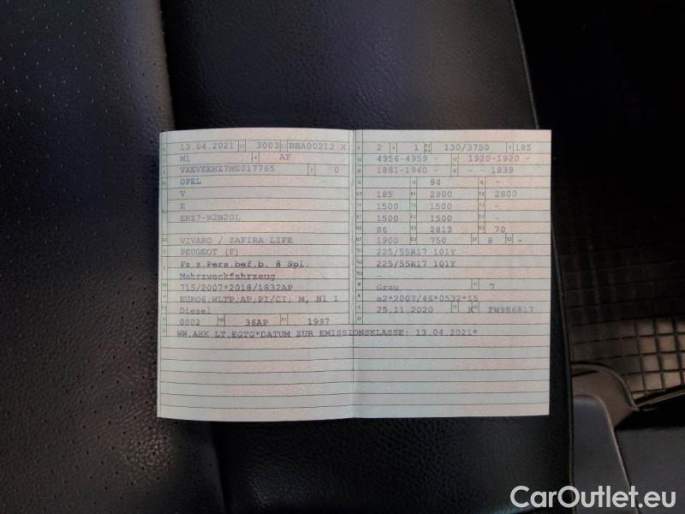 13.04.2021 3003
M1 AF
OPEL -
V
VIVARO / ZAFIRA LIFE
PEUGEOT (F)
Fz.z.Pers.bef.b. 8 Spl.
Mehrzweckfahrzeug
715/2007*2018/1832AP
EURO6;WLTP;AP;PI/CI; M, N1 I
Diesel
0002 36AP 1997
WW.AHK LT.EGTG*DATUM ZUR EMISSIONSKLASSE: 13.04.2021*
2 1 130/3750 185
4956-4959 - 1920-1920 -
1881-1940 -
84 -
185 2800 2800
1500 1500 -
1500 1500 -
86 70
1900 750 8 -
225/55R17 101Y
225/55R17 101Y
-
Grau 7
e2*2007/46*0532*15
25.11.2020 K
CarOutlet.eu